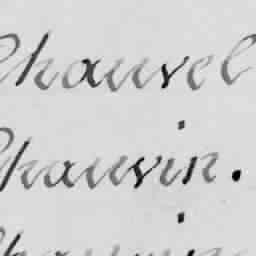 Chauvel
Chauvin.